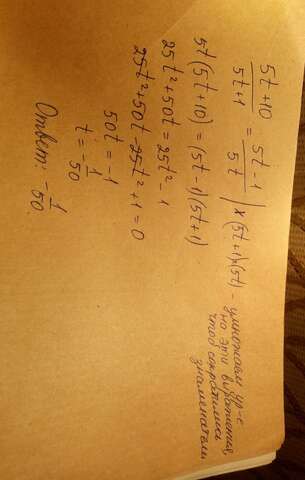 5t+10/5t+1 = 5t-1/5t | ×(5t+1)×(5t) - умножаем ур-е
на эти выражения,
чтоб сократились
знаменатели
5t(5t+10) = (5t-1)(5t+1)
25t²+50t = 25t²-1
25t²+50t-25t²+1=0
50t=-1
t=-1/50
Ответ: -1/50.